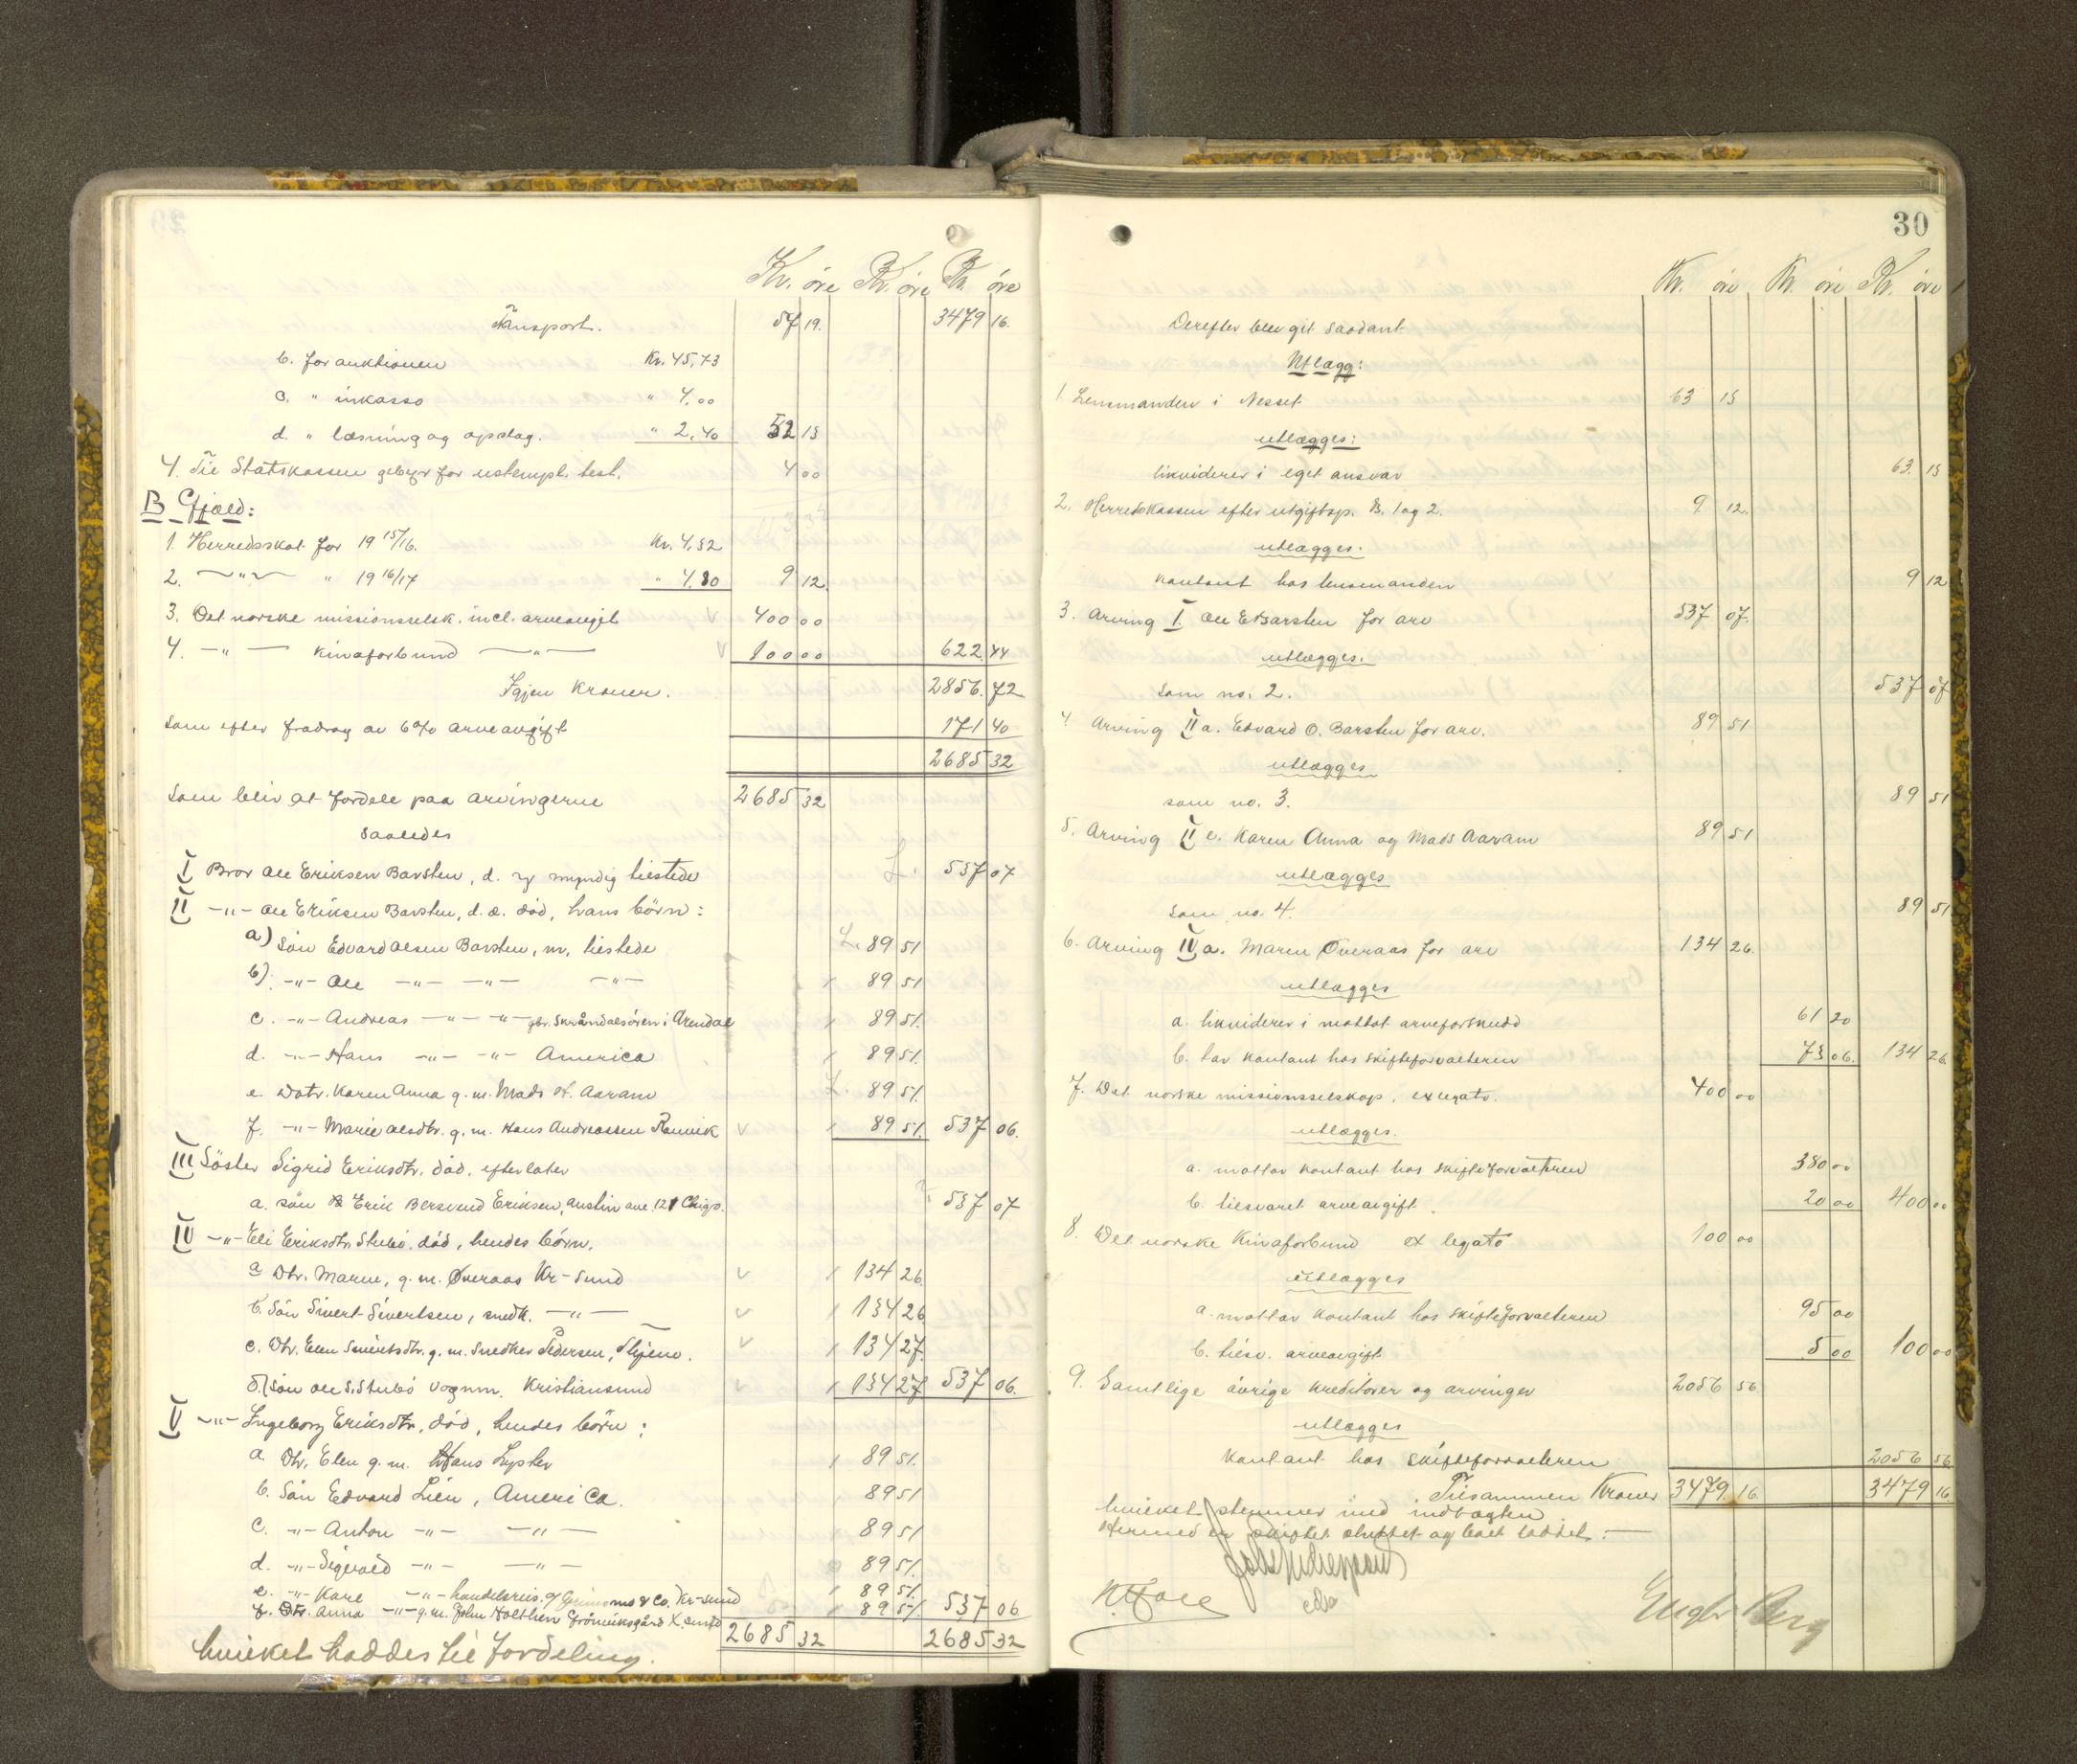 Kr. öre Kr. öre Kr. öre
Transport. 57 19. 3479 16.
b. for auktionen Kr. 45,73
c. " inkasso " 4,00
d. " læsning og opslag. " 2,40 52 13
4. Til Statskassen gebyr for ustempl. test. 4 00
B Gjæld:
1. Herredsskat for 19 15/16. Kr. 4,32
2. —"— " 19 16/17 " 4,80 9 12
3. Det norske missionsselsk. incl. arveavgift 400 00
4. —"— Kinaforbund —"— 100 00 622 44
Igjen Kroner. 2856. 72
Som efter fradrag av 6% arveavgift 171 40
2685 32
Som bliv at fordele paa arvingerne 2685 32
saaledes
I Bror Ole Eriksen Barsten, d. y. myndig tilstede 537 07
II —"— Ole Eriksen Barsten, d. æ. död, hans börn:
a) Sön Edvard Olsen Barsten, m. tilstede 89 51
b). —"— Ole —"— —"— —"— 89 51
c. —"— Andreas —"— —"— i Arendal 89 51.
d. —"— Hans —"— —"— America 89 51.
e. Datr. Karen Anna g. m. Mads H. Aaram 89 51.
f. —"— Marie Olsdtr. g. m. Hans Andreassen 89 51. 537 06.
III Söster Sigrid Eriksdtr. död, efterlater
a. sön Erik Bersvend Eriksen, Austin ave. 121 Chigo. 537 07
IV —"— Eli Eriksdtr. Stubö, död, hendes börn.
a Dtr. Maren, g. m. Overaas Kr-sund 134 26.
b. Sön Sivert Sivertsen, snedk. —"— 134 26
c. Dtr. Elen Sivertsdtr. g. m. Snedker Pedersen, 134 27.
d. Sön Ole S. Stubö vognm. Kristiansund 134 27 537 06.
V —"— Ingeborg Eriksdtr. död, hendes börn:
a. Dtr. Elen g. m. Hans Lyster 89 51.
b. Sön Edvard Lien, America. 89 51
c. —"— Anton —"— —"— 89 51
d. —"— Sigvald —"— —"— 89 51.
e. —"— Kare —"— handelsreis. & Co. Kr-sund 89 51.
f. Dtr. Anna —"— g. m. John K. sund 89 51 537 06
2685 32 2685 32
hvilket haddes til fordeling.
30
Kr. öre Kr. öre Kr. öre
Derefter blev git saadant
Utlægg:
1 Lensmanden i Nesset 63 13
utlægges:
likviderer i eget ansvar 63. 13
2. Herredskassen efter utgiftsp. B. 1 og 2. 9 12.
utlægges.
kontant hos lensmanden 9 12
3. Arving I. Ole E Barsten for arv 537 07.
utlægges.
som no. 2. 537 07
4 Arving II a. Edvard O. Barsten for arv. 89 51
utlægges
som no. 3. 89 51
5. Arving II e. Karen Anna og Mads Aaram 89 51
utlægges
som no. 4. 89 51
6. Arving IV a. Maren Overaas for arv 134 26.
utlægges
a. likviderer i mottat arveforskudd 61 20
b. tar kontant hos skifteforvalteren 73 06. 134 26
7. Det norske missionsselskap, ex legato. 400 00
utlægges.
a. mottar kontant hos skifteforvalteren 380 00
b. tilsvaret arveavgift. 20 00 400 00
8. Det norske Kinaforbund ex legato 100 00
utlægges
a. mottar kontant hos skifteforvalteren 95 00
b. tilsv. arveavgift 5 00 100 00
9. Samtlige övrige kreditorer og arvinger 2056 56.
utlægges
kontant hos skifteforvalteren 2056 56
Tilsammen Kroner 3479. 16. 3479 16
hvilket stemmer med indtægten
Hermed er skiftet sluttet og boet loddet. —
Engbr Berg